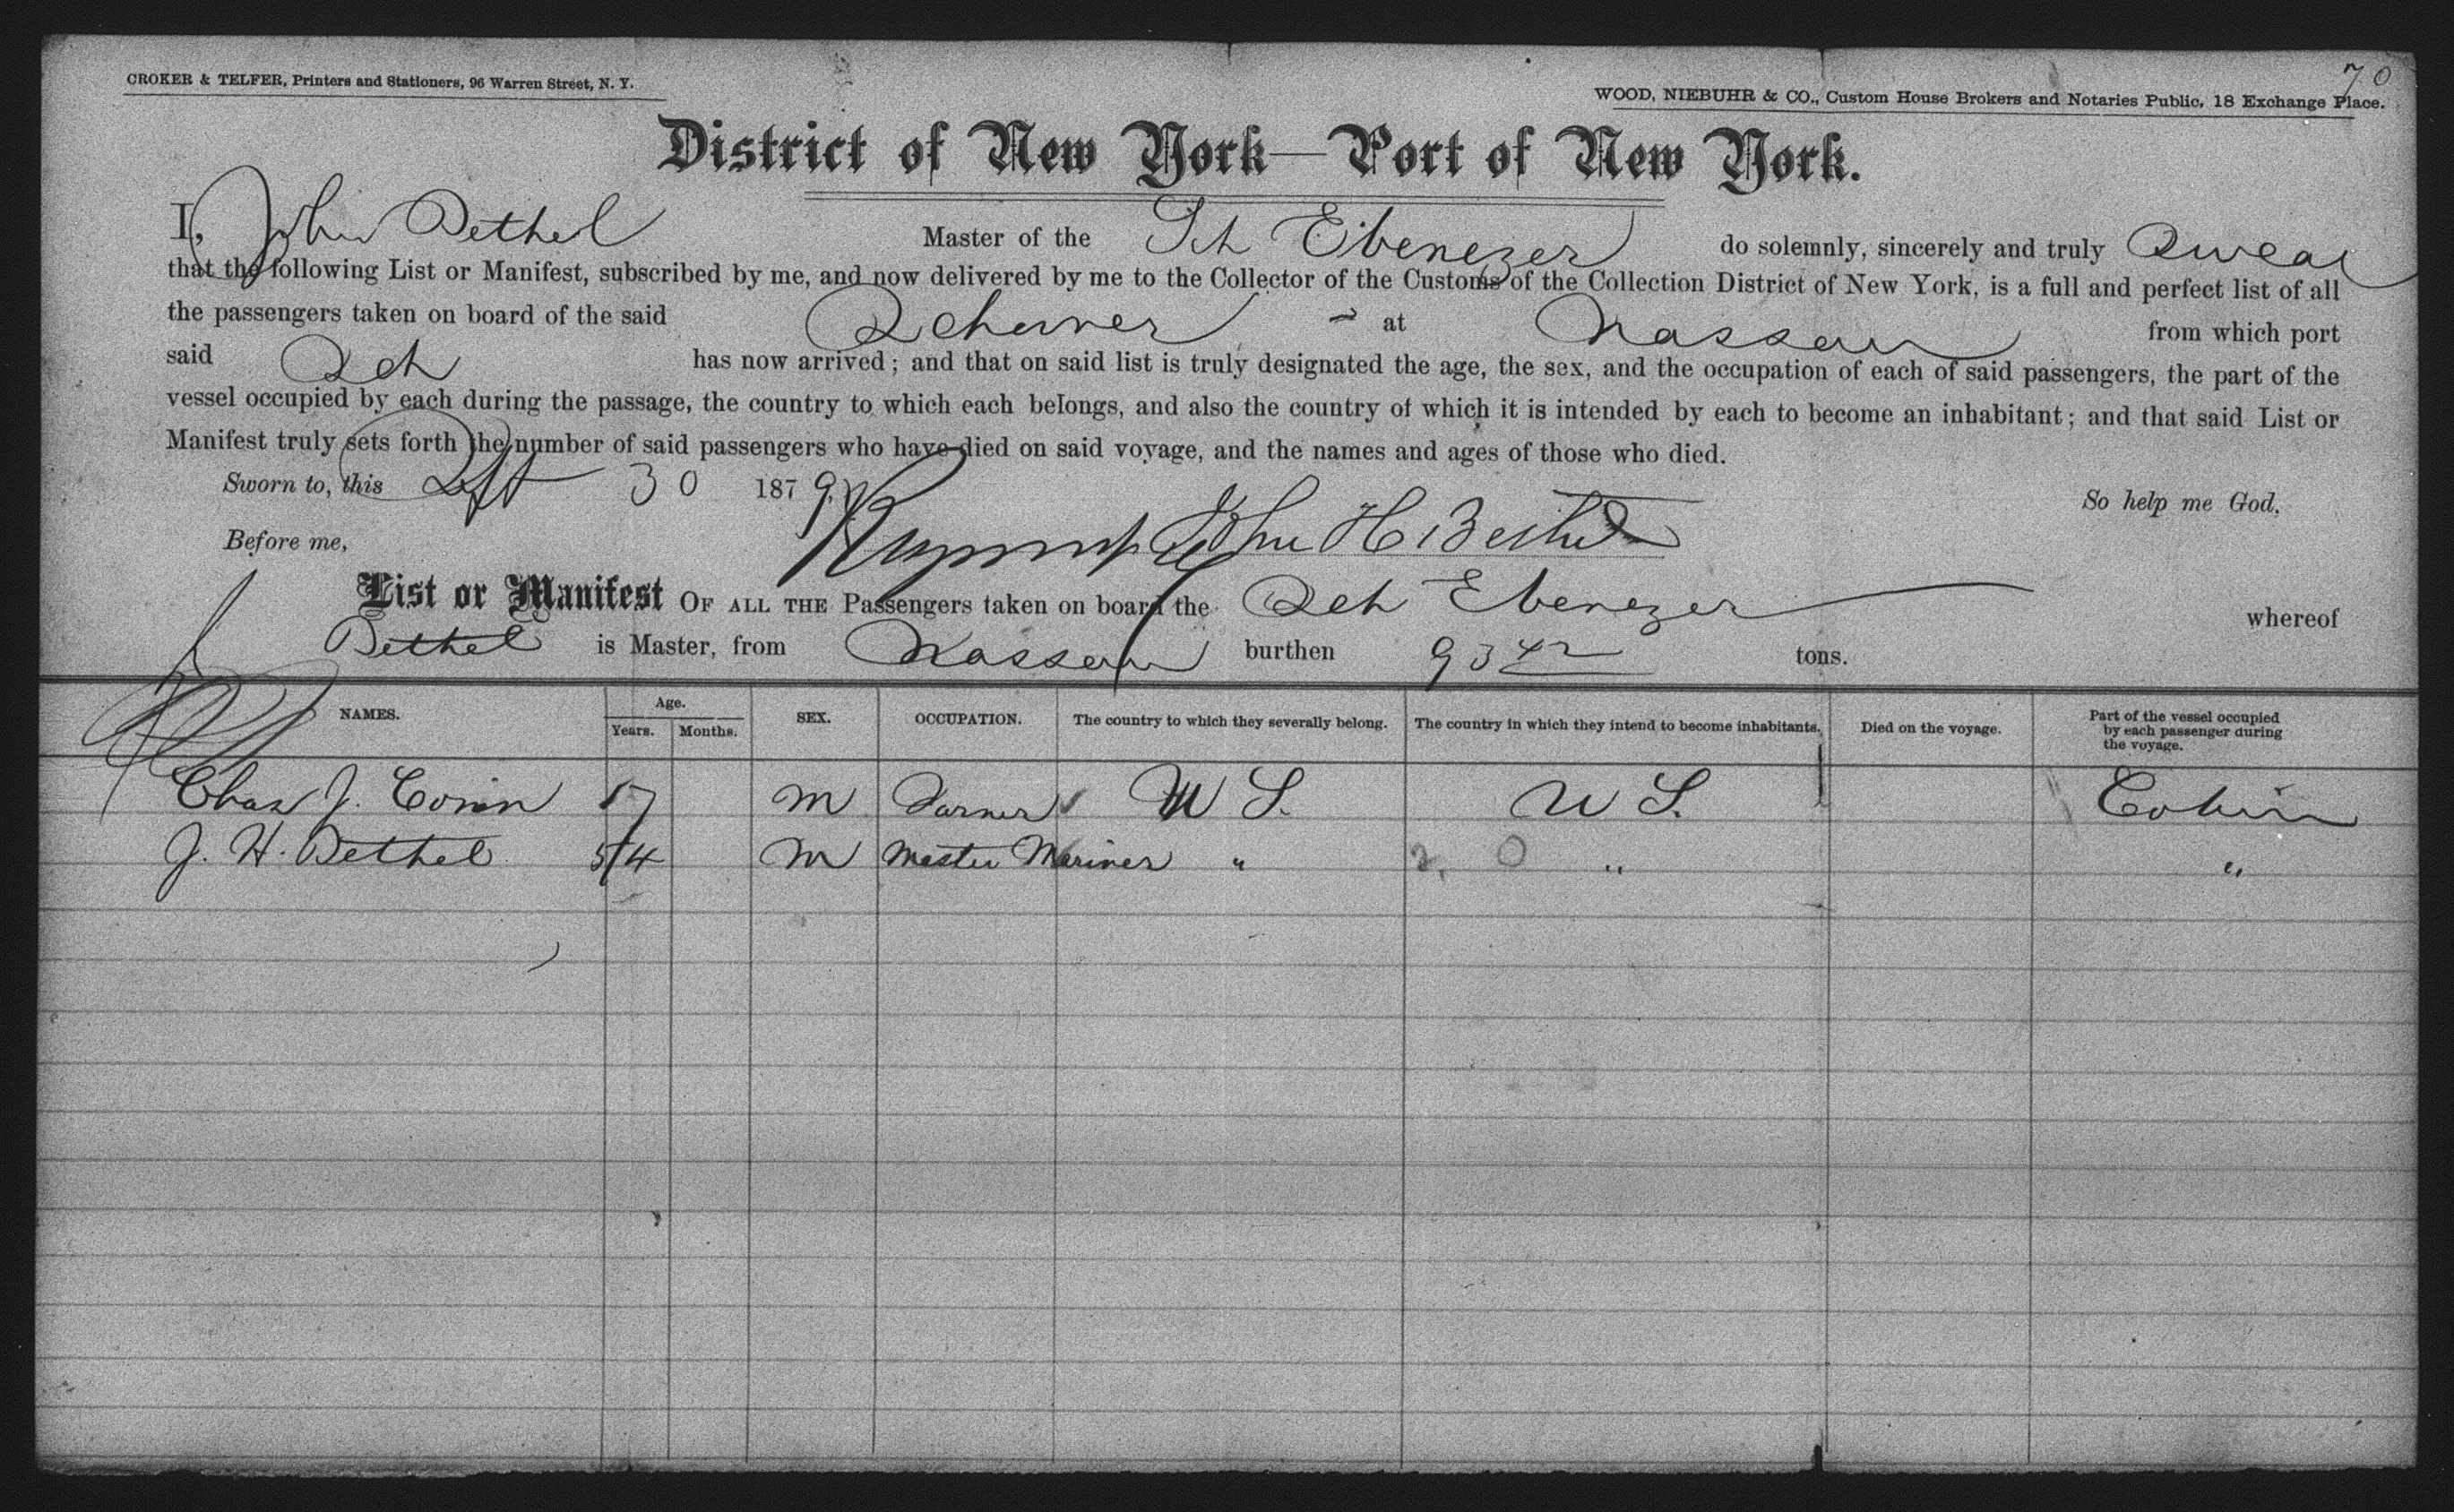 70
CROKER & TELFER, Printers and Stationers, 96 Warren Street, N. Y.
WOOD, NIEBUHR & CO., Custom House Brokers and Notaries Public, 18 Exchange Place.
District of New York—Port of New York.
I, John Bethel Master of the Sch Ebenezer do solemnly, sincerely and truly Swear
that the following List or Manifest, subscribed by me, and now delivered by me to the Collector of the Customs of the Collection District of New York, is a full and perfect list of all
the passengers taken on board of the said Schooner at Nassau from which port
said Sch has now arrived; and that on said list is truly designated the age, the sex, and the occupation of each of said passengers, the part of the
vessel occupied by each during the passage, the country to which each belongs, and also the country of which it is intended by each to become an inhabitant; and that said List or
Manifest truly sets forth the number of said passengers who have died on said voyage, and the names and ages of those who died.
Sworn to, this Sept 30 1879 So help me God,
Before me, John H Bethel
List or Manifest OF ALL THE Passengers taken on board the Sch Ebenezer whereof
Bethel is Master, from Nassau burthen 93 42 tons.
NAMES. Age. Years. Months. SEX. OCCUPATION. The country to which they severally belong. The country in which they intend to become inhabitants. Died on the voyage. Part of the vessel occupied by each passenger during the voyage.
Chas J. 17 M U S. U S. Cabin
J. H. Bethel 54 M Master Mariner " 2, 0 " "